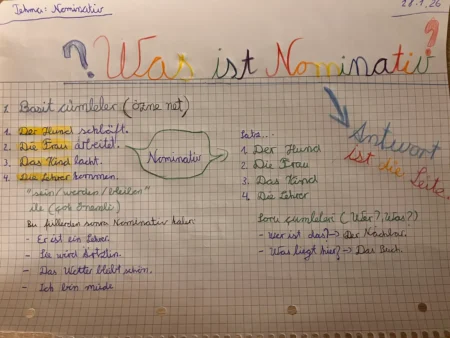 Tehma: Nominativ
28.1.26
? Was ist Nominativ ?
Basit cümleler (özne net)
1. Der Hund schläft.
2. Die Frau arbeitet.
3. Das Kind lacht.
4. Die Lehrer kommen.
Nominativ
1 Der Hund
2 Die Frau
3. Das Kind
4. Die Lehrer
Antwort
ist die Seite.
"sein/werden/bleiben"
ile (çok önemli)
Bu fiillerden sonra Nominativ
- Er ist ein Lehrer.
- Sie wird
- Das Wetter bleibt schön.
- Ich bin müde
Soru cümleleri (Wer?, Was?)
- wer ist das? → Der Nachbar.
- Was liegt hier? → Das Buch.